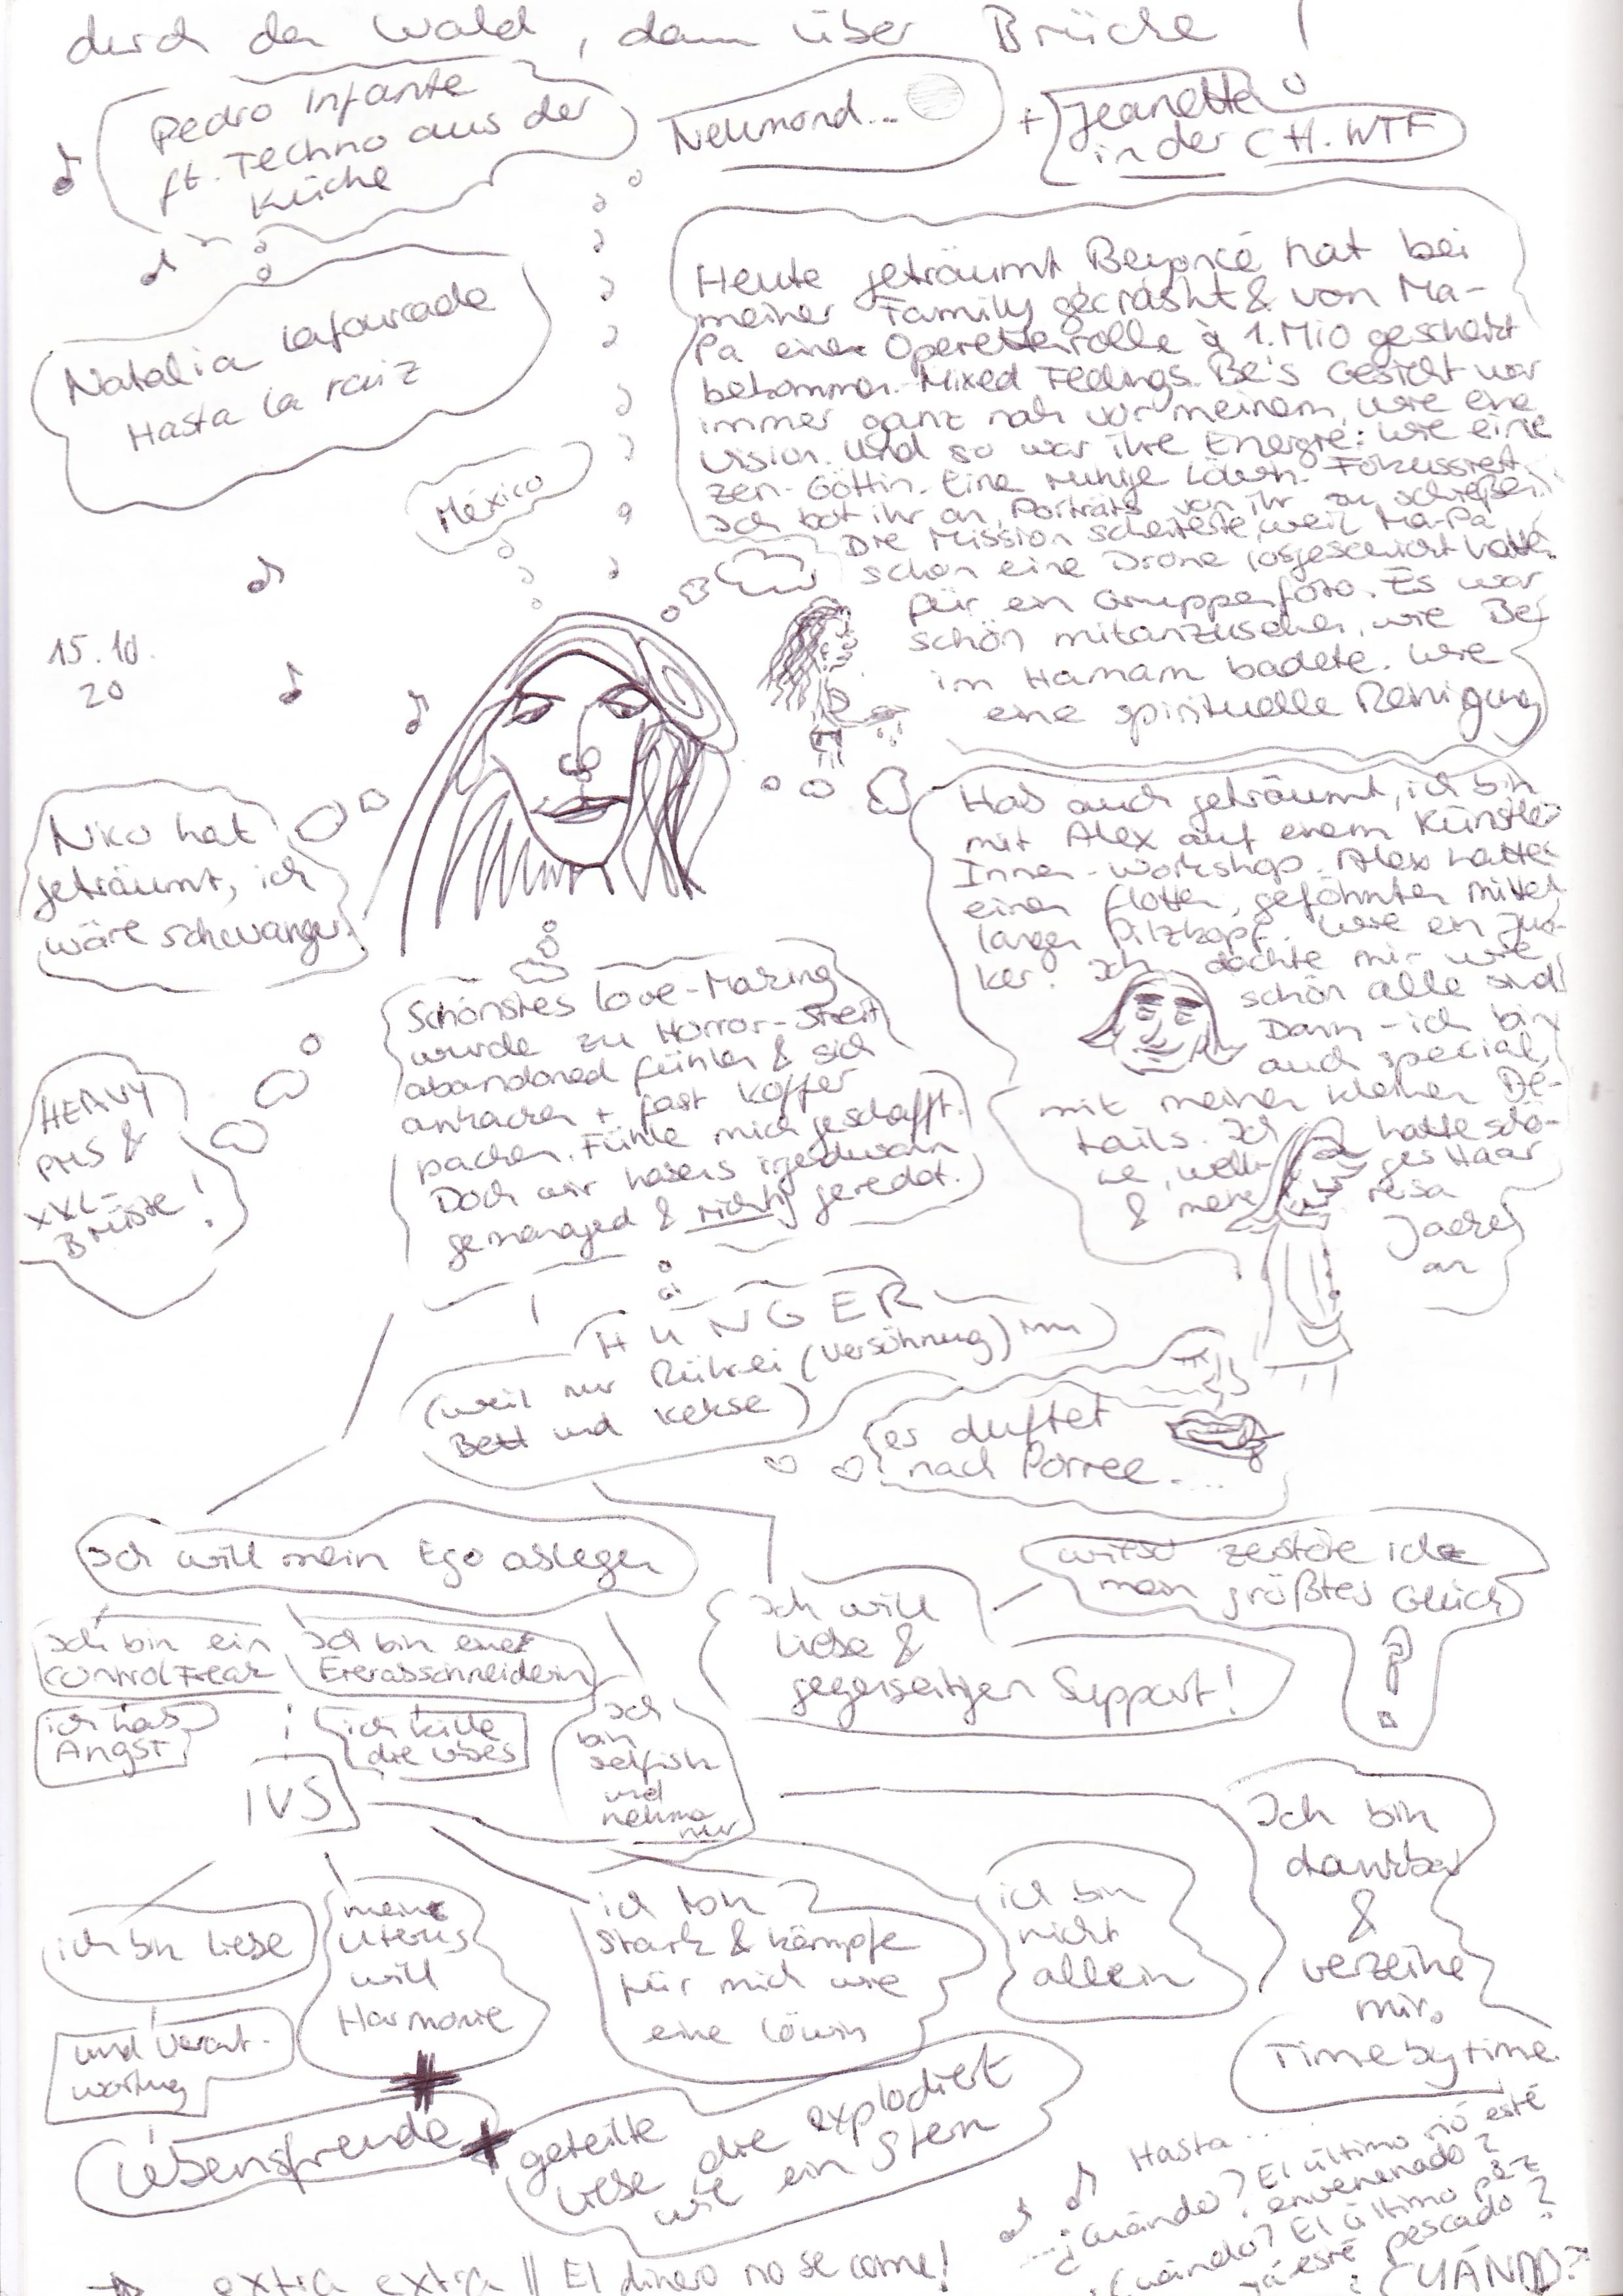 durch den Wald, dann über Brücke !
Pedro Infante
ft. Techno aus der
Küche
Neumond...
+ Jeanette
in der CH. WTF
Natalia Lafourcade
Hasta la raíz
México
Heute geträumt, Beyoncé hat bei
meiner Family gecrasht & von Ma-
Pa eine Operettenrolle à 1. Mio geschenkt
bekommen. Mixed Feelings. Be's Gesicht war
immer ganz nah vor meinem, wie eine
Vision. Und so war ihre Energie: wie eine
Zen-Göttin. Eine ruhige Löwin. Fokussiert.
Ich bot ihr an, Porträts von ihr zu schießen.
Die Mission scheiterte, weil Ma-Pa
schon eine Drone losgeschickt hatten
für ein Gruppenfoto. Es war
schön mitanzusehen, wie Be
im Hamam badete. Wie
eine spirituelle Reinigung
15.10.
20
Niko hat
geträumt, ich
wäre schwanger.
Hab auch geträumt, ich bin
mit Alex auf einem Künstler
Innen-Workshop. Alex hatte
einen flotten, geföhnten mittel
langen Pilzkopf. Wie ein Jun-
ker. Ich dachte mir wie
schön alle sind
Dann - ich bin
auch special,
mit meinen kleinen De-
tails. Ich hatte schö-
ne, welliges Haar
& meine rosa
Jacke
an
Schönstes Love-Making
wurde zu Horror-Streit
abandoned fühlen & sich
ankacken + fast Koffer
packen. Fühle mich geschafft.
Doch wir habens irgendwann
gemanaged & richtig geredet.
HEAVY
PMS &
XXL-
Brüste!
HUNGER
(weil nur Rührei (Versöhnung) im
Bett und Kekse)
es duftet
nach Porree....
Ich will mein Ego ablegen
Ich bin ein
Control Freak
Ich bin eine
Eierabschneiderin
ich hab
Angst
ich kille
die Vibes
Ich
bin
selfish
und
nehme
nur
Ich will
Liebe &
gegenseitigen Support!
wieso zerstöre ich
mein größtes Glück
?
IVS
ich bin Liebe
und Verant-
wortung
mein
Uterus
will
Harmonie
ich bin
stark & kämpfe
für mich wie
eine Löwin
ich bin
nicht
allein
Ich bin
dankbar
&
verzeihe
mir.
Time by time.
Lebensfreude
+ geteilte
Liebe die explodiert
wie ein Stern
Hasta ...
...¿Cuándo? El último río esté
envenenado?
¿Cuándo? El último pez
ya esté pescado?
¿CUÁNDO?
extra extra || El dinero no se come!